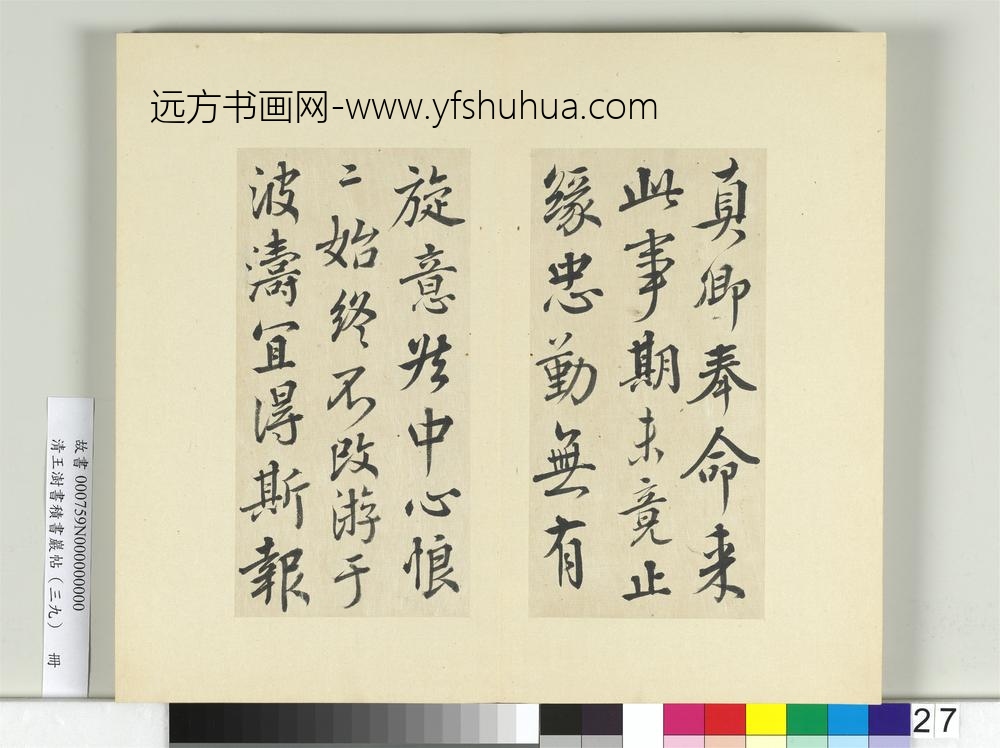 远方书画网-www.yfshuhua.com
真卿奉命来
此事期未竟止
緣忠勤無有
旋意於中心悢
二始終不改游于
波濤宜得斯報
故書 000759N000000000
清王澍書積書巖帖（三九） 冊
27